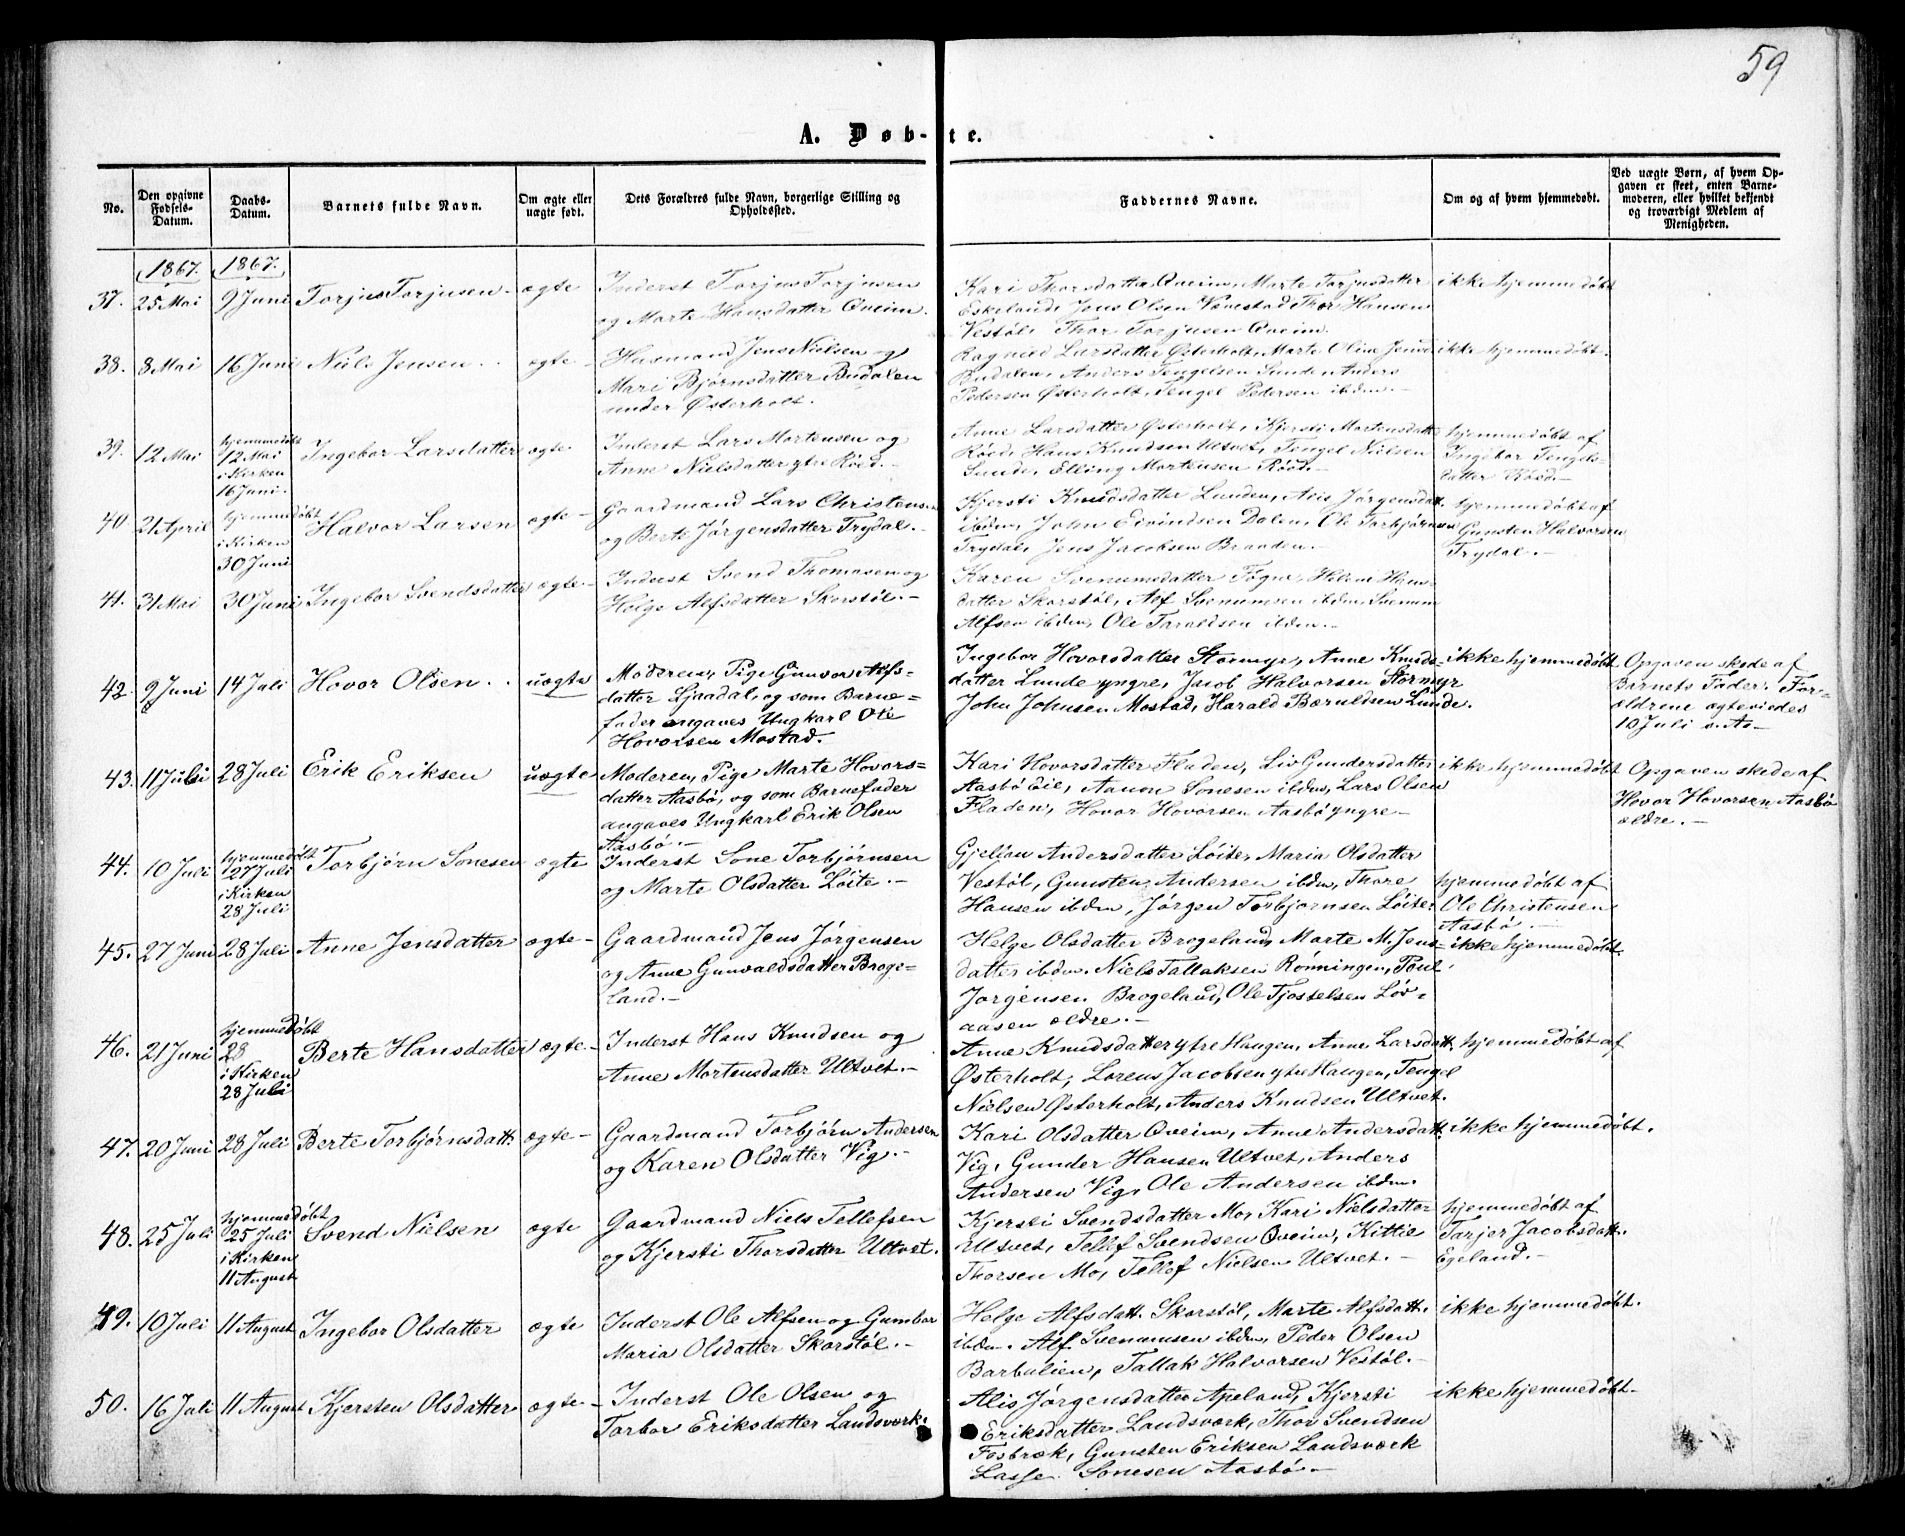 59
A. Døb-te.
No.
Den opgivne Fødsels-Datum.
Daabs-Datum.
Barnets fulde Navn.
Om ægte eller uægte født.
Dets Forældres fulde Navn, borgerlige Stilling og Opholdssted.
Faddernes Navne.
Om og af hvem hjemmedøbt.
Ved uægte Børn, af hvem Opgaven er skeet, enten Barnemoderen, eller hvilket bekjendt og troværdigt Medlem af Menigheden.
1867. 1867.
37. 25 Mai 9 Juni Torjus Torjusen ægte
Inderst Torjus Torjusen
og Marte Hansdatter Qveim.
Kari Thorsdatter Qveim, Marte Torjusdatter
Eskeland, Jens Olsen Vævestad, Thor Hansen
Vestøl, Thor Torjusen Qveim.
ikke hjemmedøbt
38. 8 Mai 16 Juni Niels Jensen ægte
Husmand Jens Nielsen og
Mari Bjørnsdatter Budalen
under Østerholt.
Ragnild Larsdatter Østerholt, Marte Oline Jensd.
Budalen, Anders Tengelsen Sunde, Anders
Pedersen Østerholt, Tengel Pedersen ibdm.
ikke hjemmedøbt.
39. 12 Mai hjemmedøbt
12 Mai
i Kirken
16 Juni.
Ingebor Larsdatter ægte
Inderst Lars Mortensen og
Anne Nielsdatter ytre Röed.
Anne Larsdatter Østerholt, Kjersti Mortensdatt.
Röed, Hans Knudsen Ultvet, Tengel Nielsen
Sunde, Elling Mortensen Röod.
hjemmedøbt af
Ingebor Tengels-
datter Röed.
40. 21 April hjemmedøbt
i Kirken
30 Juni
Halvor Larsen ægte
Gaardmand Lars Christensen
og Berte Jørgensdatter Trydal.
Kjersti Knudsdatter Lunden, Alis Jørgensdatt.
ibdm, John Eivindsen Dalen, Ole Torbjørnsen
Trydal, Jens Jacobsen Braaden.
hjemmedøbt af
Gunsten Halvorsen
Trydal.
41. 31 Mai 30 Juni Ingebor Svendsdatter ægte
Inderst Svend Thomasen og
Helge Alfsdatter Skorstøl.
Karen Svenumsdatter Fogne, Helene Hans-
datter Skorstøl, Alf Svenumsen ibdm, Svenum
Alfsen ibdm, Ole Taraldsen ibdm.
42. 9 Juni 14 Juli Hovor Olsen. uægte
Moderen, Pige Gunvor Alfs-
datter Ljaadal, og som Barne-
fader angaves Ungkarl Ole
Hovorsen Mostad.
Ingebor Hovorsdatter Stormyr, Anne Knuds-
datter Lunde yngre, Jacob Halvorsen Stormyr
John Johnsen Mostad, Harald Bæruldsen Lunde.
ikke hjemmedøbt
Opgaven skede af
Barnets Fader. For-
ældrene ægteviedes
10 Juli s. A.
43. 11 Juli 28 Juli Erik Eriksen uægte
Moderen, Pige Marte Hovors-
datter Aasbø, og som Barnefader
angaves Ungkarl Erik Olsen
Aasbø.
Kari Hovorsdatter Fladen, Liv Gundersdatter
Aasbø Eie, Aanon Sonesen ibdm, Lars Olsen
Fladen, Hovor Hovorsen Aasbø yngre
ikke hjemmedøbt
Opgaven skede af
Hovor Hovorsen Aasbø
ældre.
44. 10 Juli hjemmedøbt
27 Juli
i Kirken
28 Juli
Torbjørn Sonesen ægte
Inderst Sone Torbjørnsen
og Marte Olsdatter Löite.
Gjelian Andersdatter Löite, Maria Olsdatter
Vestøl, Gunsten Andersen ibdm, Thore
Hansen ibdm, Jørgen Torbjørnsen Löite.
hjemmedøbt af
Ole Christensen
Aasbø.
45. 27 Juni 28 Juli Anne Jensdatter ægte
Gaardmand Jens Jørgensen
og Anne Gunvaldsdatter Broge-
land.
Helge Olsdatter Brogeland, Marte M. Jens-
datter ibdm. Niels Tallaksen Rønningen, Poul
Jørgensen Brogeland, Ole Tjostelsen Løv-
aasen ældre.
ikke hjemmedøbt.
46. 21 Juni hjemmedøbt
28
i Kirken
28 Juli
Berte Hansdatter ægte
Inderst Hans Knudsen og
Anne Mortensdatter Ultvet.
Anne Knudsdatter ytre Haugen, Anne Larsdatt.
Østerholt, Lorens Jacobsen ytre Haugen, Tengel
Nielsen Østerholt, Anders Knudsen Ultvet.
hjemmedøbt af
47. 20 Juni 28 Juli Berte Torbjørnsdatt: ægte
Gaardmand Torbjørn Andersen
og Karen Olsdatter Vig.
Kari Olsdatter Qveim, Anne Andersdatt.
Vig, Gunder Hansen Ultvet, Anders
Andersen Vig, Ole Andersen ibdm.
ikke hjemmedøbt.
48. 25 Juli hjemmedøbt
25 Juli
i Kirken
11 August
Svend Nielsen ægte
Gaardmand Niels Tellefsen
og Kjersti Thorsdatter Ultvet.
Kjersti Svendsdatter Mo, Kari Nielsdatter
Ultvet, Tellef Svendsen Qveim, Kittil
Thorsen Mo, Tellef Nielsen Ultvet.
hjemmedøbt af
Tarjer Jacobsdatt.
Egeland.
49. 10 Juli 11 August Ingebor Olsdatter ægte
Inderst Ole Alfsen og Gumbor
Maria Olsdatter Skorstøl.
Helge Alfsdatt. Skorstøl, Marte Alfsdatt.
ibdm. Alf Svenumsen ibdm, Peder Olsen
Barbulien, Tallak Halvorsen Vestøl.
ikke hjemmedøbt.
50. 16 Juli 11 August Kjersten Olsdatter ægte
Inderst Ole Olsen og
Torbor Eriksdatter Landsværk.
Alis Jørgensdatter Apeland, Kjersti
Eriksdatter Landsværk, Thor Svendsen
Fosbræk, Gunsten Eriksen Landsværk
Lasse Sonesen Aasbø
ikke hjemmedøbt